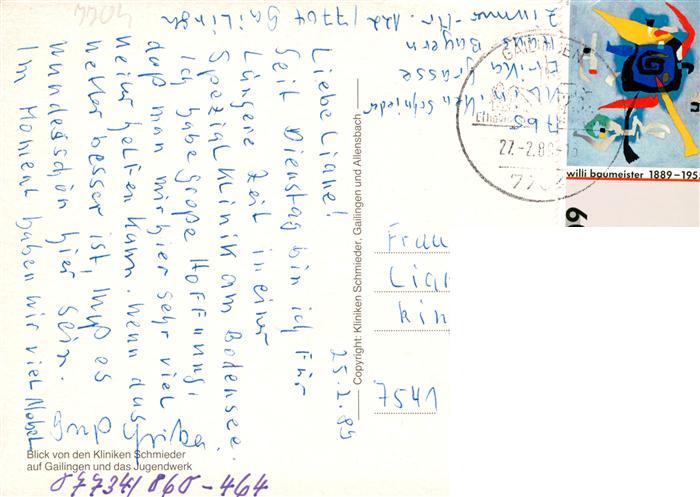 25.2.89
Liebe Liane!
Seit Dienstag bin ich für
längere Zeit in einer
Spezialklinik am Bodensee.
Ich habe große Hoffnung,
daß man mir hier sehr viel
weiterhelfen kann. Wenn das
Wetter besser ist, muß es
wunderschön hier sein.
Im Moment haben wir viel Nebel.
Gruß Erika
Erika Grasse
Kliniken Schmieder
Haus Bayern
Zimmer-Nr. 122 / 7704 Gailingen
Blick von den Kliniken Schmieder
auf Gailingen und das Jugendwerk
07734/860-464
Copyright: Kliniken Schmieder, Gailingen und Allensbach
GAILINGEN
27.-2.89
770
willi baumeister 1889-195
Frau
Lia
7541